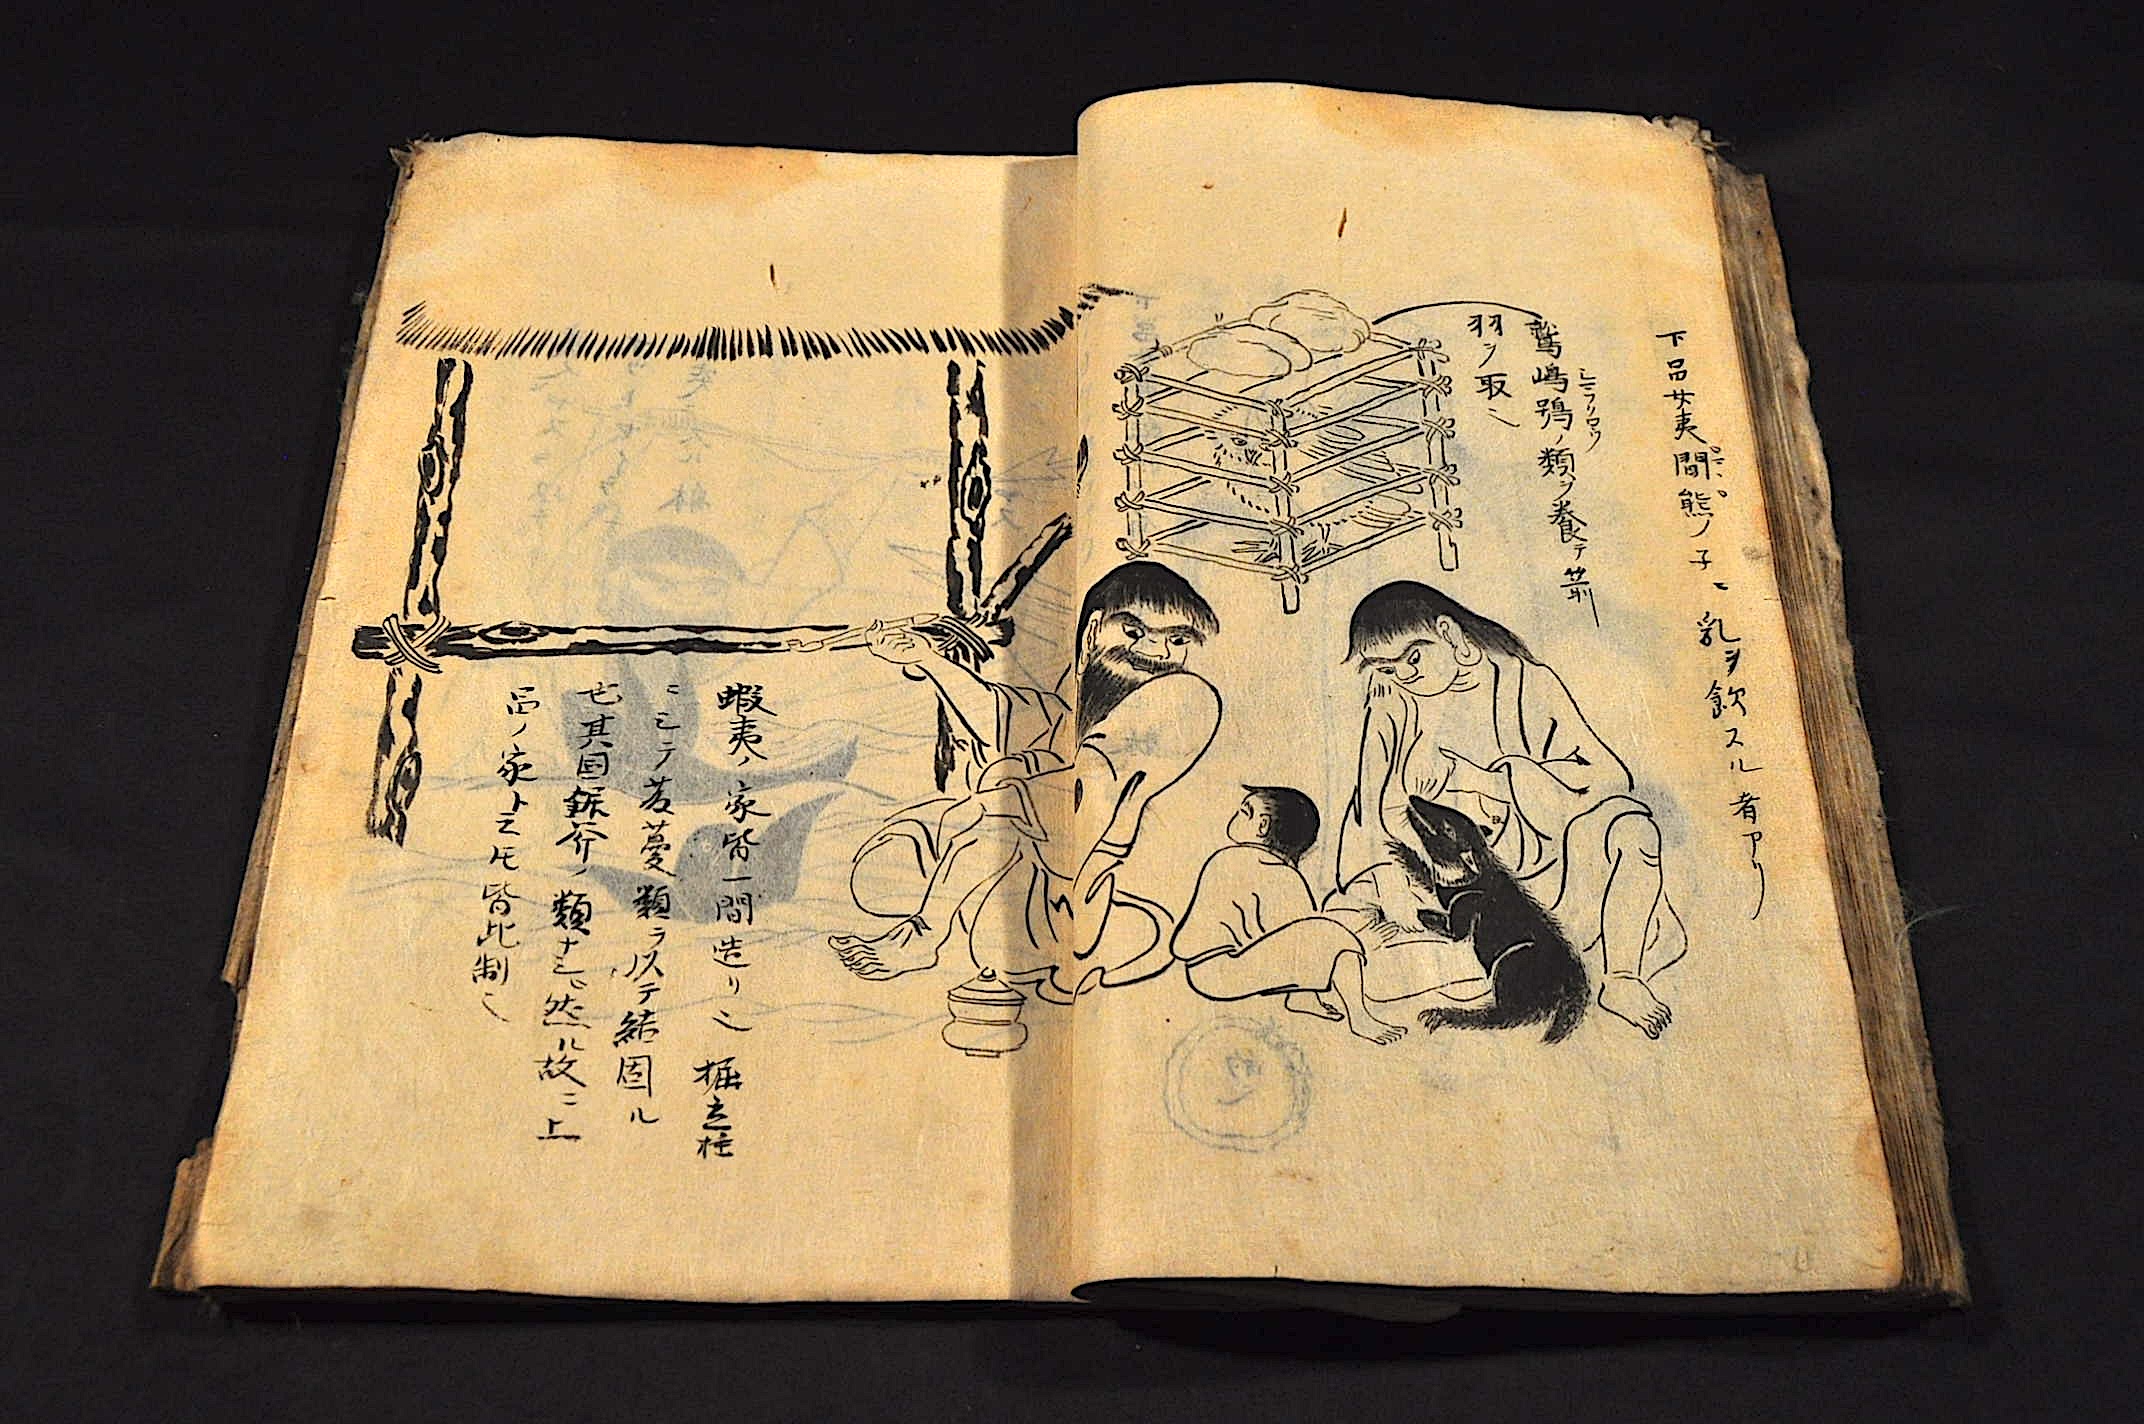 下品女夷間熊ノ子ニ乳ヲ飲スル者アリ
ママ
シマフクロウ
鷲嶋鵶ノ類ヲ養テ箭
羽ヲ取ル
蝦夷ノ家皆一間造リ也 掘立柱
ニシテ葛蔓類ヲ以テ結固ル
也其国鋸斧ノ類ナシ然ル故ニ上
品ノ家ト云トモ皆此制也